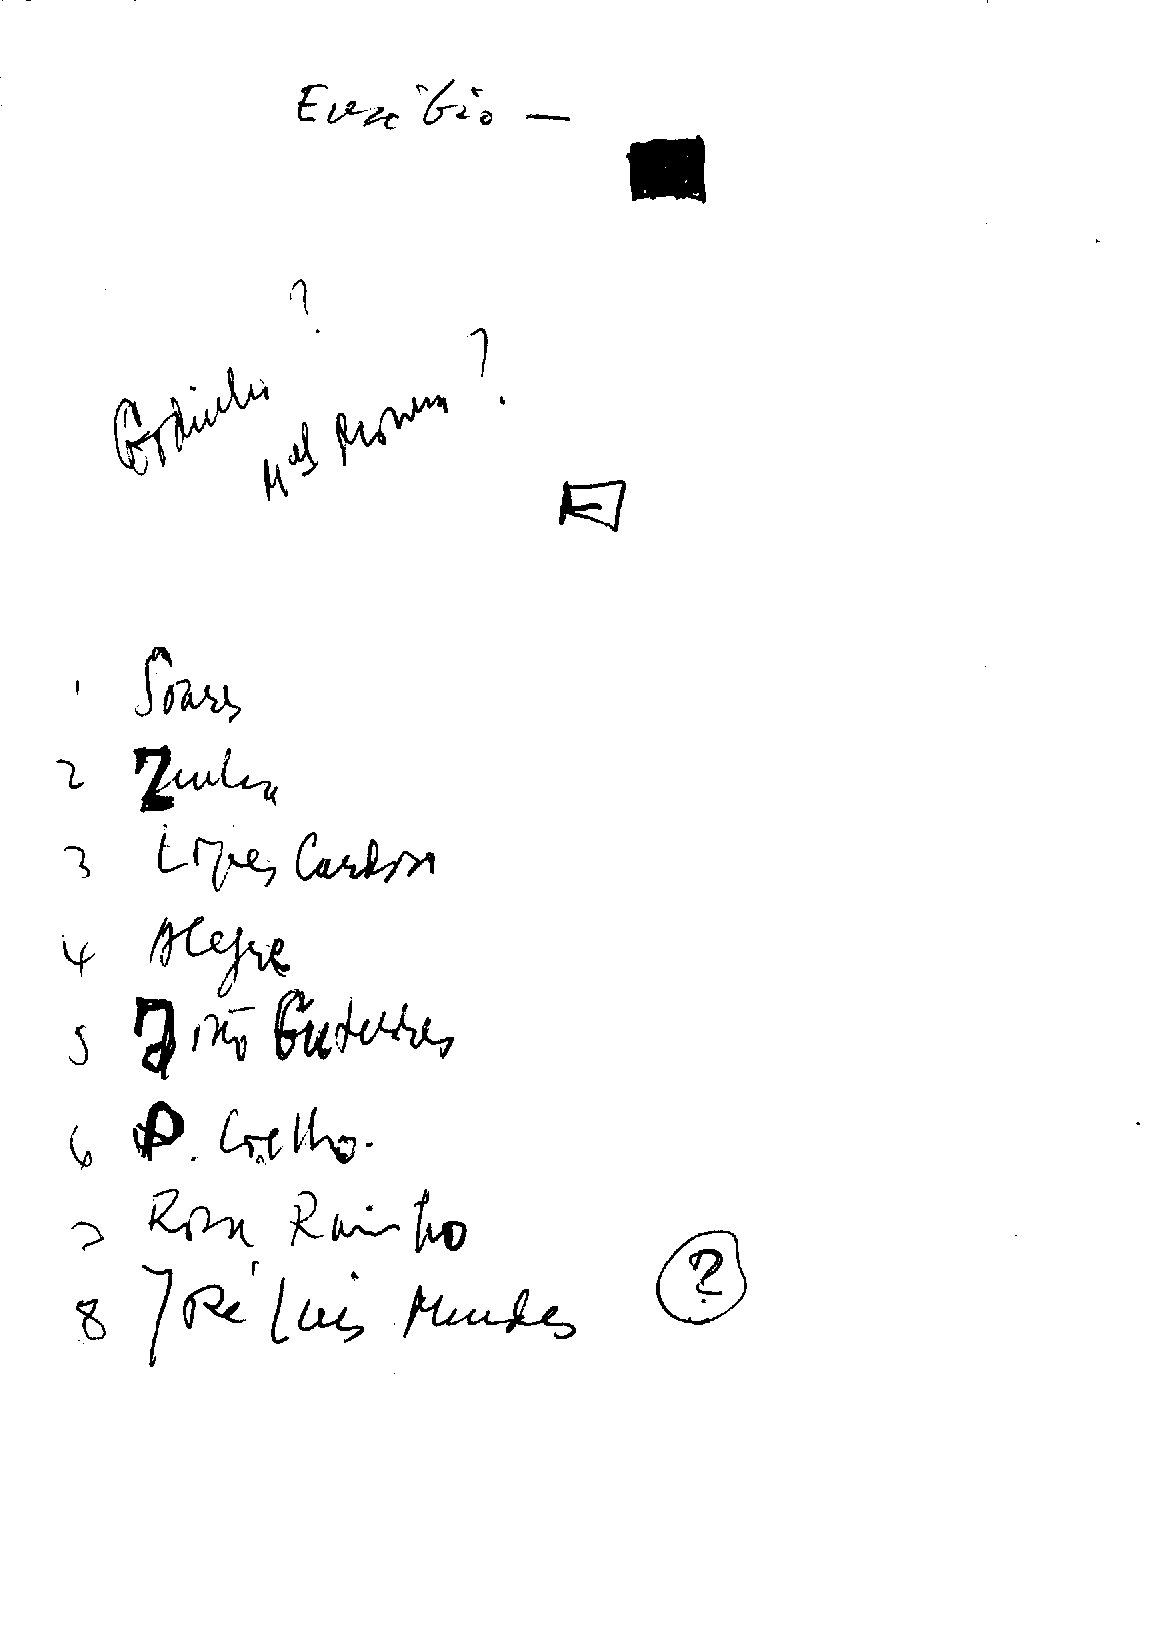 Eusébio —
?
Godinho
?
1 Soares
2 Zenha
3 Lopes Cardoso
4 Alegre
5 João Guterres
6 P. Coelho.
7 Rosa Rainho
8 José Luis Mendes ?